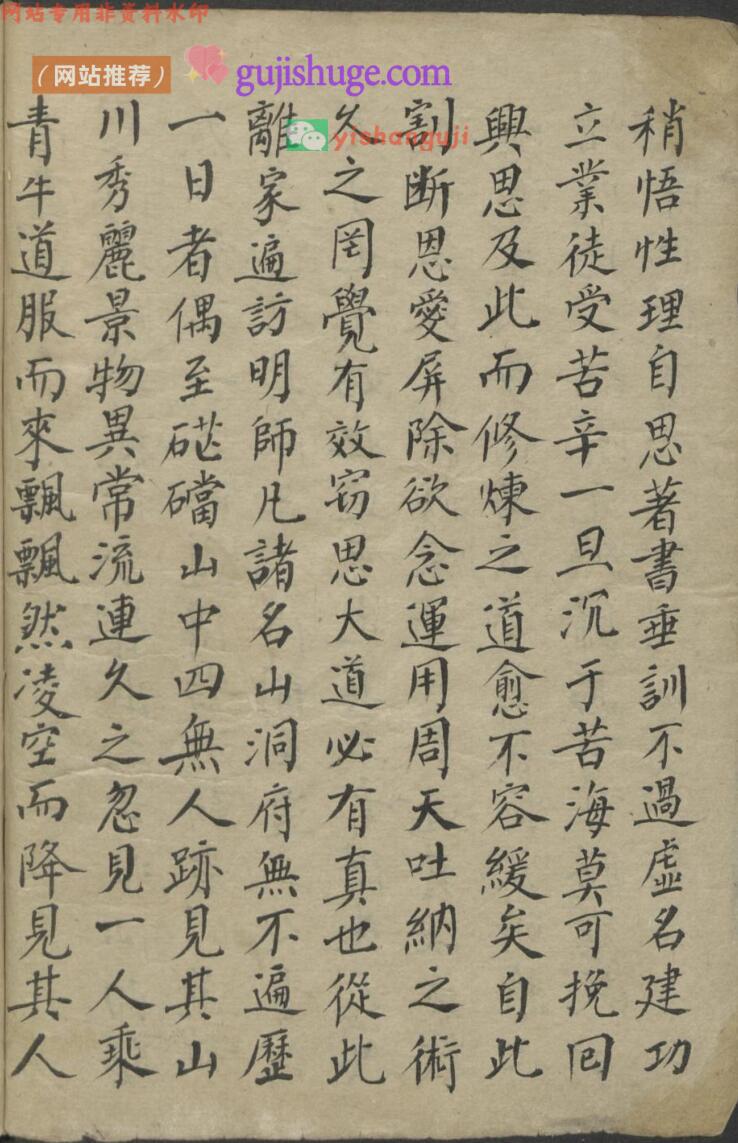 网站专用非资料水印
（网站推荐）
gujishuge.com
yishanguji
稍悟性理自思著書垂訓不過虛名建功
立業徒受苦辛一旦沉于苦海莫可挽回
興思及此而修煉之道愈不容緩矣自此
割断恩愛屏除欲念運用周天吐納之術
久之罔覺有效窃思大道必有真也從此
離家遍訪明師凡諸名山洞府無不遍歷
一日者偶至硭礑山中四無人跡見其山
川秀麗景物異常流連久之忽見一人乘
青牛道服而來飄飄然凌空而降見其人